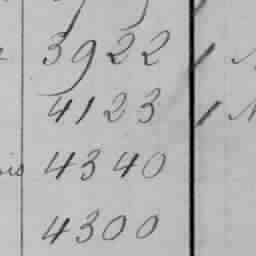 3922
4123
4340
4300